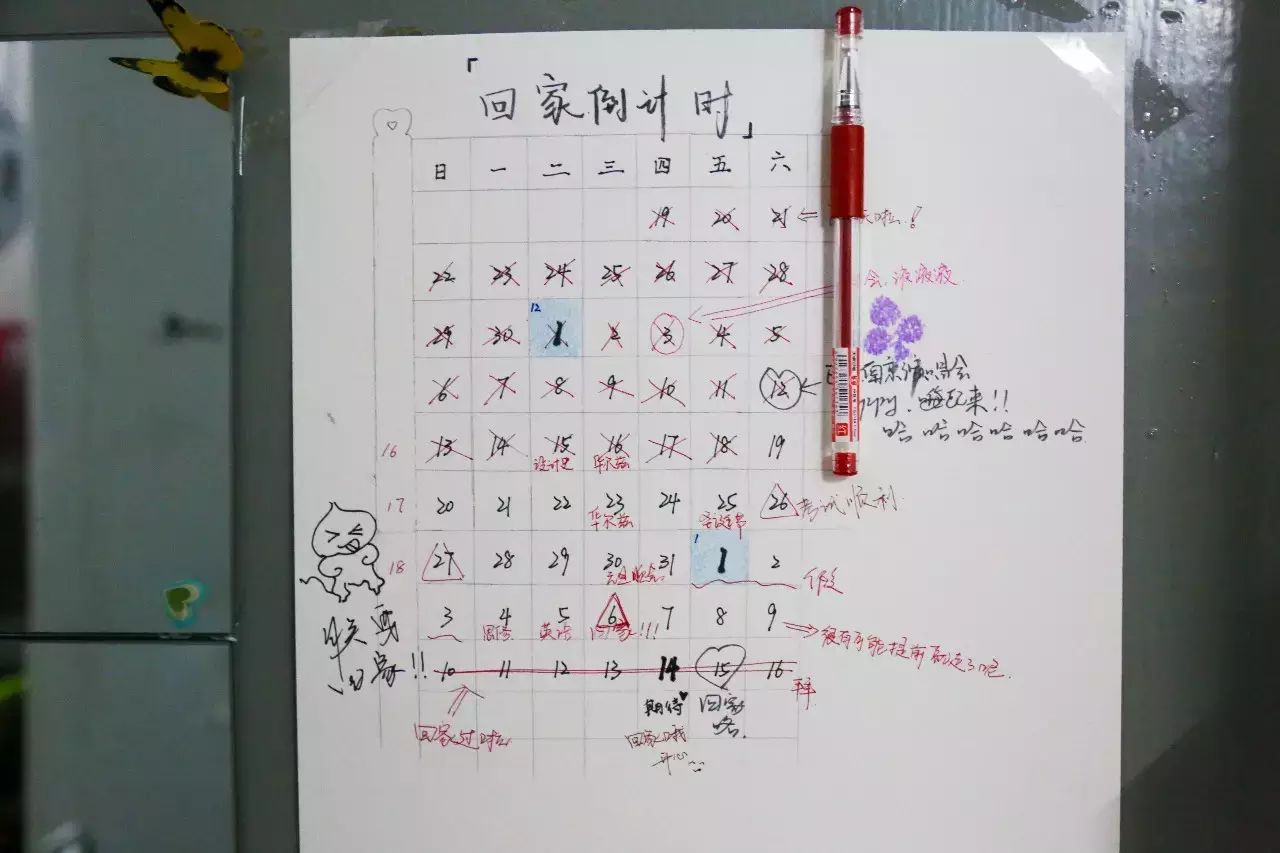 「回家倒计时」
日 一 二 三 四 五 六
19 20 21 ⇐ 啦！
22 23 24 25 26 27 28
会 液液液
12
29 30 1 2 3 4 5
6 7 8 9 10 11 12 ←
南京演唱会
嗨起来!!
哈哈哈哈哈哈
16 13 14 15 16 17 18 19
设计史 华尔兹
17 20 21 22 23 24 25 26 考试顺利
华尔兹 圣诞节
1
18 27 28 29 30 31 1 2
元旦晚会 假
3 4 5 6 7 8 9 ⇒ 很有可能提前就走了呢
英语 回家!!!
10 11 12 13 14 15 16
期待 回家咯
回家过啦
回家哦
开心
回家!!